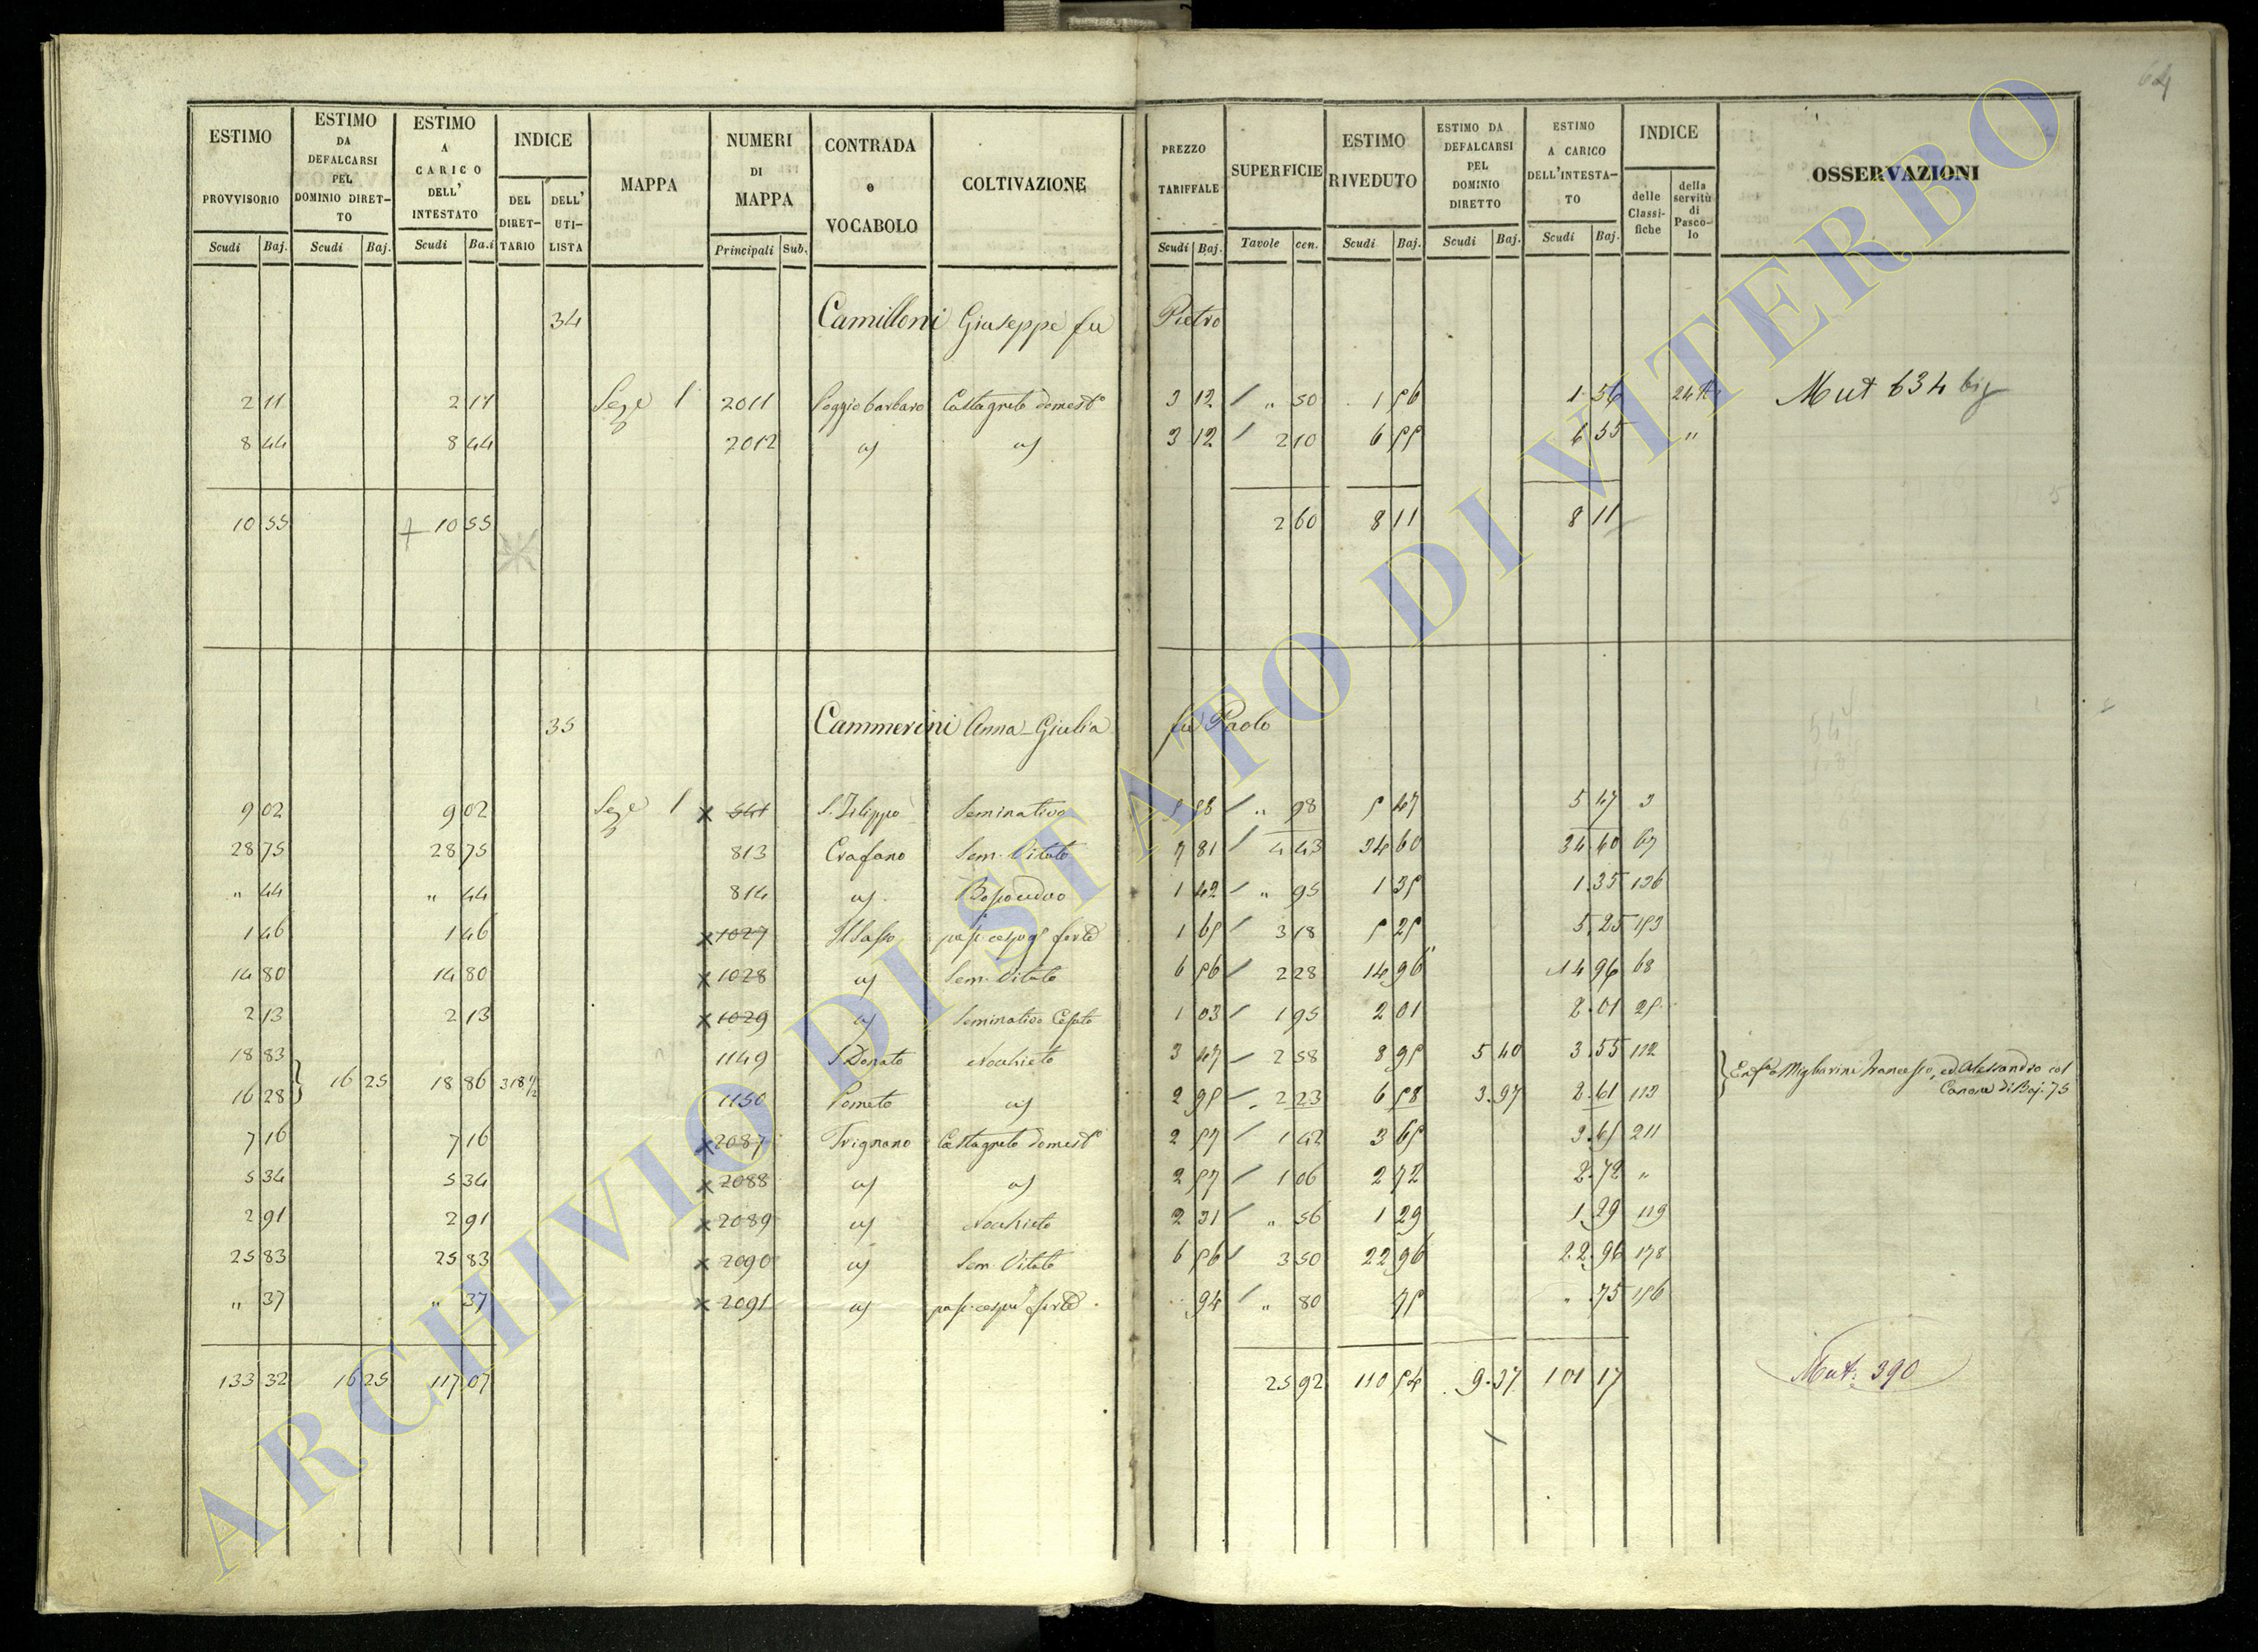 64
ESTIMO PROVVISORIO Scudi Baj.
ESTIMO DA DEFALCARSI PEL DOMINIO DIRETTO Scudi Baj.
ESTIMO A CARICO DELL' INTESTATO Scudi Ba.i
INDICE DEL DIRETTARIO DELL' UTILISTA
MAPPA
NUMERI DI MAPPA Principali Sub.
CONTRADA o VOCABOLO
COLTIVAZIONE
PREZZO TARIFFALE Scudi Baj.
SUPERFICIE Tavole cen.
ESTIMO RIVEDUTO Scudi Baj.
ESTIMO DA DEFALCARSI PEL DOMINIO DIRETTO Scudi Baj.
ESTIMO A CARICO DELL'INTESTATO Scudi Baj.
INDICE delle Classifiche della servitù di Pascolo
OSSERVAZIONI
34 Camilloni Giuseppe fu Pietro
2 11 2 11 Seze 1 2011 Poggio barbaro Castagneto domest° 3 12 " 50 1 56 1 56 Mut 634 big
8 44 8 44 2012 3 12 2 10 6 55 6 55 "
10 55 10 55 2 60 8 11 8 11
35 Cammerini Anna-Giulia fu Paolo
9 02 9 02 Seze 1 541 S. Filippo Seminativo 5 58 " 98 5 47 5 47 3
28 75 28 75 813 Crafano Sem. Vitato 7 81 4 43 34 60 34 60 67
" 44 " 44 814 1 42 " 95 1 35 1 35 126
1 46 1 46 1027 Il Sasso forte 1 65 3 18 5 25 5 25 153
14 80 14 80 1028 Sem. Vitato 6 56 2 28 14 96 14 96 68
2 13 2 13 1029 Seminativo Cesato 1 03 1 95 2 01 2 01 25
18 83 1149 S. Donato Nocchieto 3 47 2 58 8 95 5 40 3 55 112
16 25 18 86 318 1/2
16 28 1150 Pometo 2 95 2 23 6 58 3.97 2 61 113
Enf.a Migliarini Francesco, ed Alessandro col
Canone di Baj. 75
7 16 7 16 2087 Trignano Castagneto domest° 2 57 1 42 3 65 3 65 211
5 34 5 34 2088 2 57 1 06 2 72 2 72 "
2 91 2 91 2089 Nocchieto 2 31 " 56 1 29 1 29 119
25 83 25 83 2090 Sem. Vitato 6 56 3 50 22 96 22 96 178
" 37 " 37 2091 forte 94 " 80 75 " 75 156
133 32 16 25 117 07 25 92 110 54 9.37 101 17 Mut. 390
ARCHIVIO DI STATO DI VITERBO